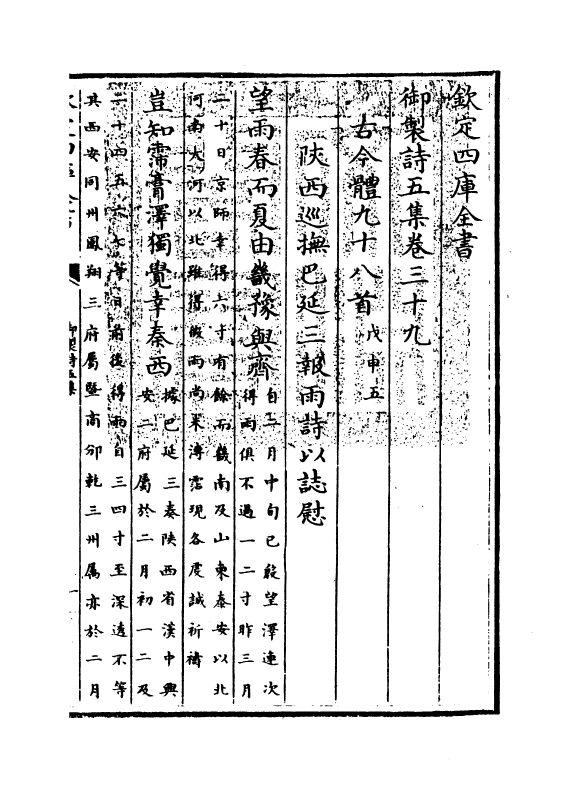 欽定四庫全書
御製詩五集卷三十九
古今體九十八首戊申五
陜西巡撫巴延三報雨詩以誌慰
望雨春而夏由畿豫與齊自二月中旬已殷望澤連次
得雨俱不過一二寸昨三月
二十日京師幸得六寸有餘而畿南及山東泰安以北
河南大河以北雖得微雨尚未溥霑現各虔誠祈禱
豈知霈膏澤獨覺幸秦西據巴延三奏陜西省漢中興
安二府屬於二月初一二及
二十四五六七等日前後得雨自三四寸至深透不等
其西安同州鳳翔三府屬暨商邠乾三州屬亦於二月
御製詩五集
一